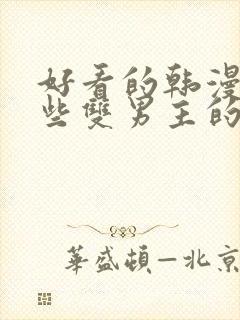 好看的韩漫
些雙男主的
華盛頓—北京